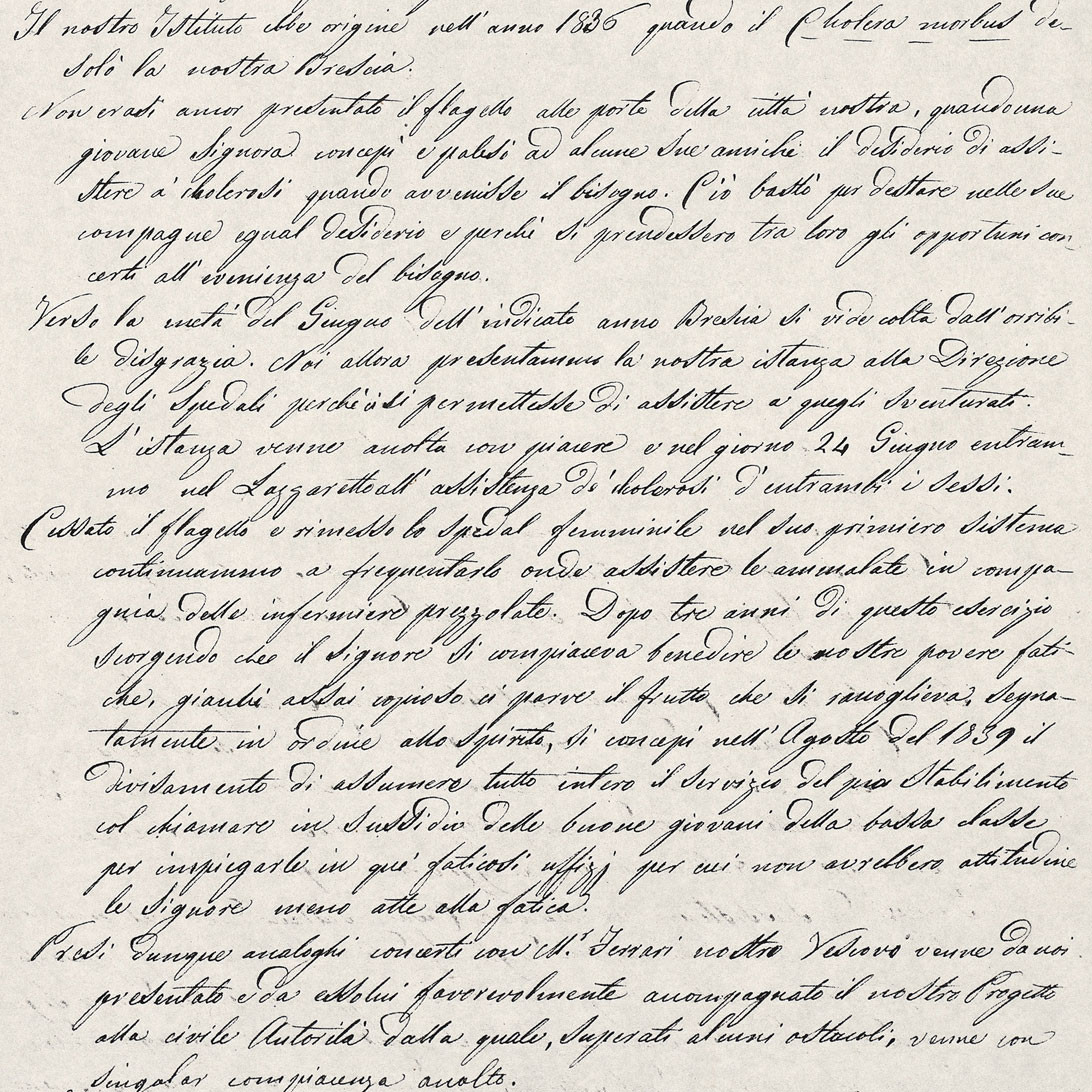 Il nostro Istituto ebbe origine nell'anno 1836 quando il Cholera morbus de-
solò la nostra Brescia.
Non erasi ancor presentato il flagello alle porte della città nostra, quando una
giovane Signora concepì e palesò ad alcune sue amiche il desiderio di assi-
stere a' cholerosi quando avvenisse il bisogno. Ciò bastò per destare nelle sue
compagne egual desiderio e perchè si prendessero tra loro gli opportuni con-
certi all'evenienza del bisogno.
Verso la metà del Giugno dell'indicato anno Brescia si vide colta dall'orribi-
le disgrazia. Noi allora presentammo la nostra istanza alla Direzione
degli Spedali perchè ci si permettesse di assistere a quegli sventurati.
L'istanza venne accolta con piacere e nel giorno 24 Giugno entram-
mo nel Lazzaretto all'assistenza de' cholerosi d'entrambi i sessi.
Cessato il flagello e rimesso lo spedal femminile nel suo primiero sistema
continuammo a frequentarlo onde assistere le ammalate in compa-
gnia delle infermiere prezzolate. Dopo tre anni di questo esercizio
scorgendo che il Signore si compiaceva benedire le nostre povere fati-
che, giacchè assai copioso ci parve il frutto che si raccoglieva, segna-
tamente in ordine allo spirito, si concepì nell'Agosto del 1839 il
divisamento di assumere tutto intero il servizio del pio Stabilimento
col chiamare in sussidio delle buone giovani della bassa classe
per impiegarle in que' faticosi uffizj per cui non avrebbero attitudine
le Signore meno atte alla fatica.
Presi dunque analoghi concerti con M.r Ferrari nostro Vescovo venne da noi
presentato e da essolui favorevolmente accompagnato il nostro Progetto
alla civile Autorità dalla quale, superati alcuni ostacoli, venne con
singolar compiacenza accolto.